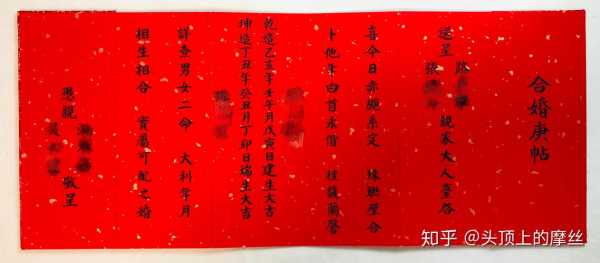 合婚庚帖
送呈 張 親家大人臺啓
喜今日赤繩系定 珠聯璧合
卜他年白首永偕 桂馥蘭馨
乾造乙亥年壬午月戊寅日建生大吉
坤造丁丑年癸丑月丁卯日瑞生大吉
詳查男女二命 大利年月
相生相合 實屬可配之婚
愚親 敬呈
知乎 @头顶上的摩丝